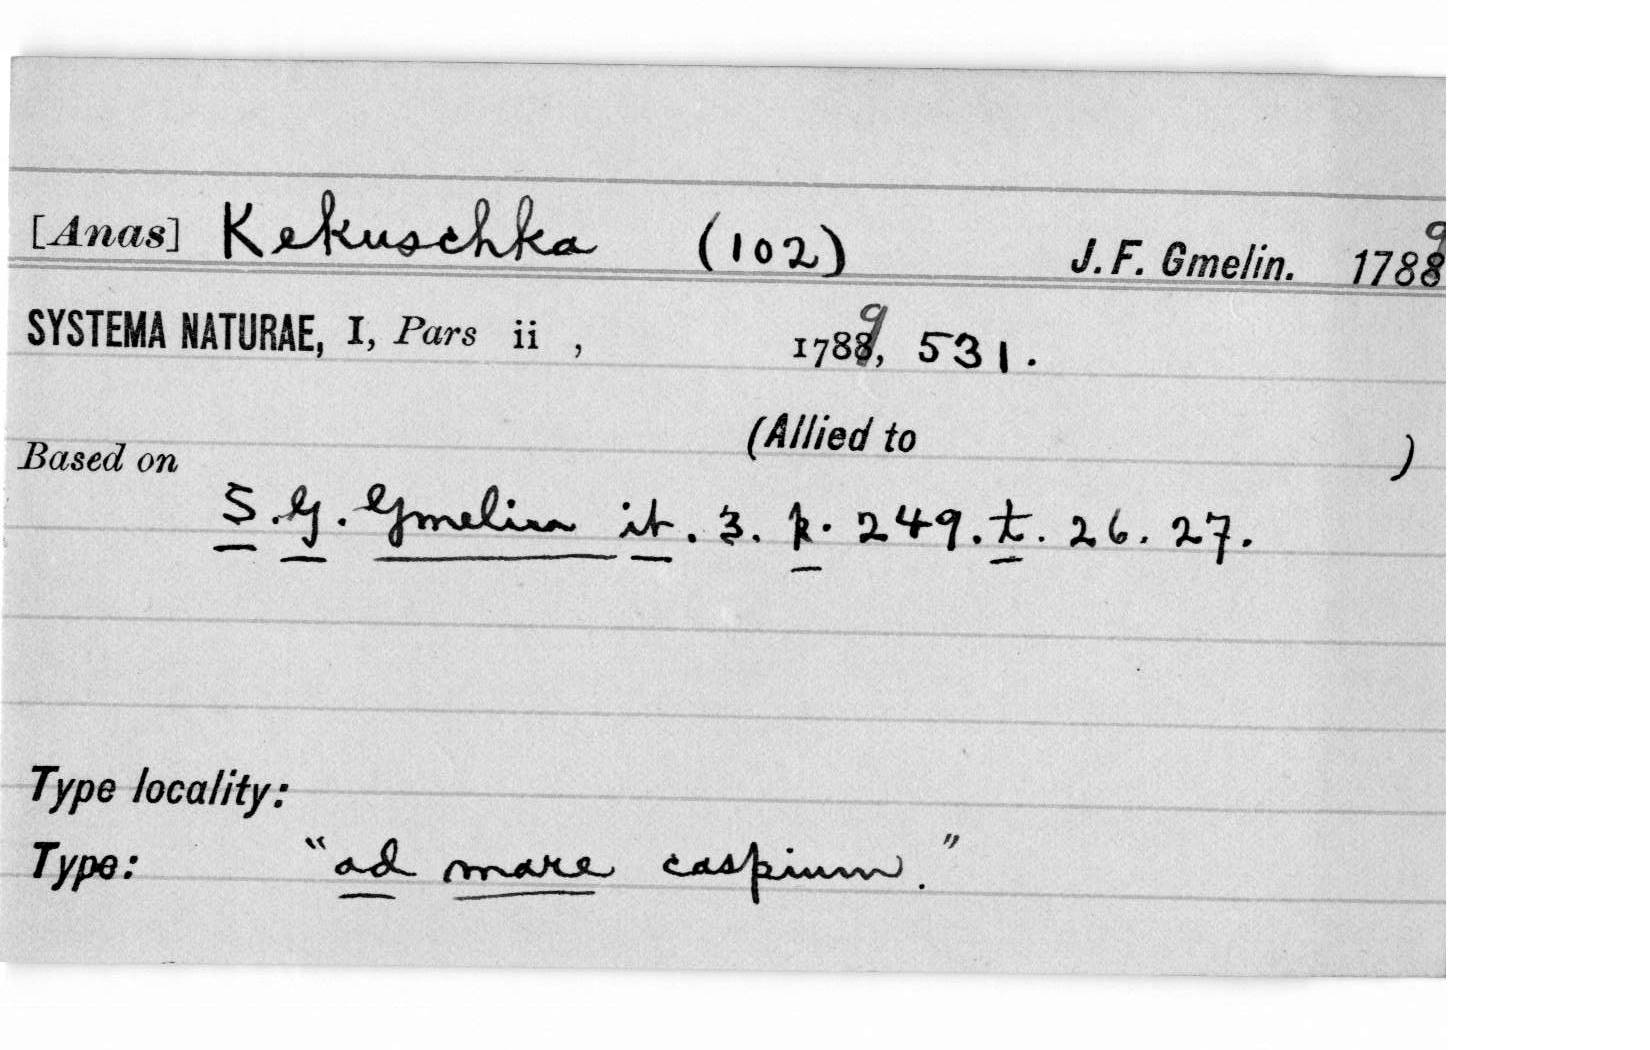 [Anas] Kekuschka (102) J. F. Gmelin. 1789
SYSTEMA NATURAE, I, Pars ii , 1789, 531.
(Allied to )
Based on
S. G. Gmelin it. 3. p. 249. t. 26. 27.
Type locality:
Type: "ad mare caspium."